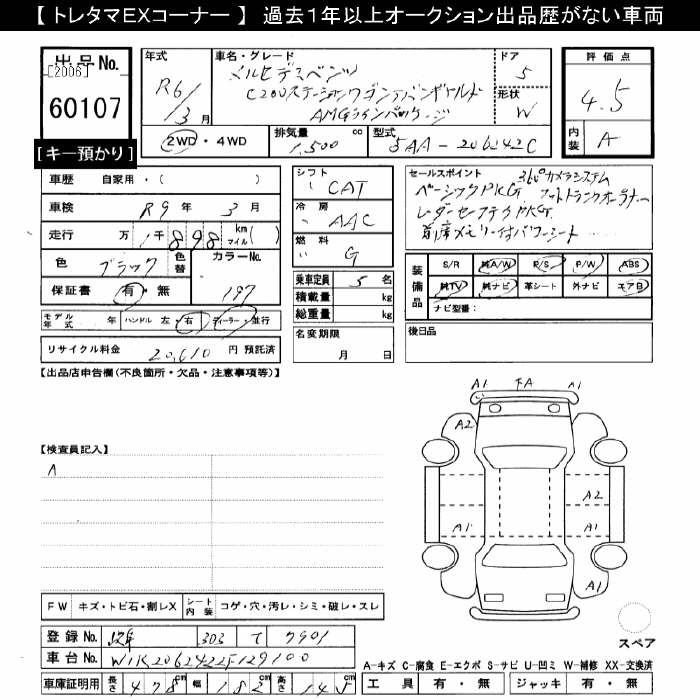 【 トレタマEXコーナー 】 過去1年以上オークション出品歴がない車両
出品No.
[2006]
60107
[キー預かり]
年式
R6/3月
車名・グレード
メルセデスベンツ
C200ステーションワゴンアバンギャルド
AMGラインパッケージ
ドア
5
形状
W
2WD ・ 4WD
排気量
1,500 cc
型式
5AA - 206242C
評価点
4.5
内装
A
車歴 自家用・( )
車検 R9年 3月
走行 万 1千898 km マイル( )
色 ブラック
色替
カラーNo.
197
保証書 有・無
モデル年式 年
ハンドル 左・右
ディーラー・並行
リサイクル料金 20,610 円 預託済
シフト
CAT
冷房
AAC
燃料
G
乗車定員 5名
積載量 kg
総重量 kg
名変期限
月 日
セールスポイント 360°カメラシステム
ベーシックPKG フットトランクオープナー
レーダーセーフティPKG
前席メモリー付パワーシート
装備品
S/R 純A/W P/S P/W ABS
純TV 純ナビ 革シート 外ナビ エアB
ナビ型番:
後日品
【出品店申告欄(不良箇所・欠品・注意事項等)】
【検査員記入】
A
A1 下A A1
A2
A2
A1 A1
A1
スペア
FW キズ・トビ石・割レX
シート内装 コゲ・穴・汚レ・シミ・破レ・スレ
登録No. 303 て 7901
車台No. W1K2062422F129100
車庫証明用 長さ 478cm 幅 182cm 高さ 145cm
A-キズ C-腐食 E-エクボ S-サビ U-凹ミ W-補修 XX-交換済
工具 有・無 ジャッキ 有・無